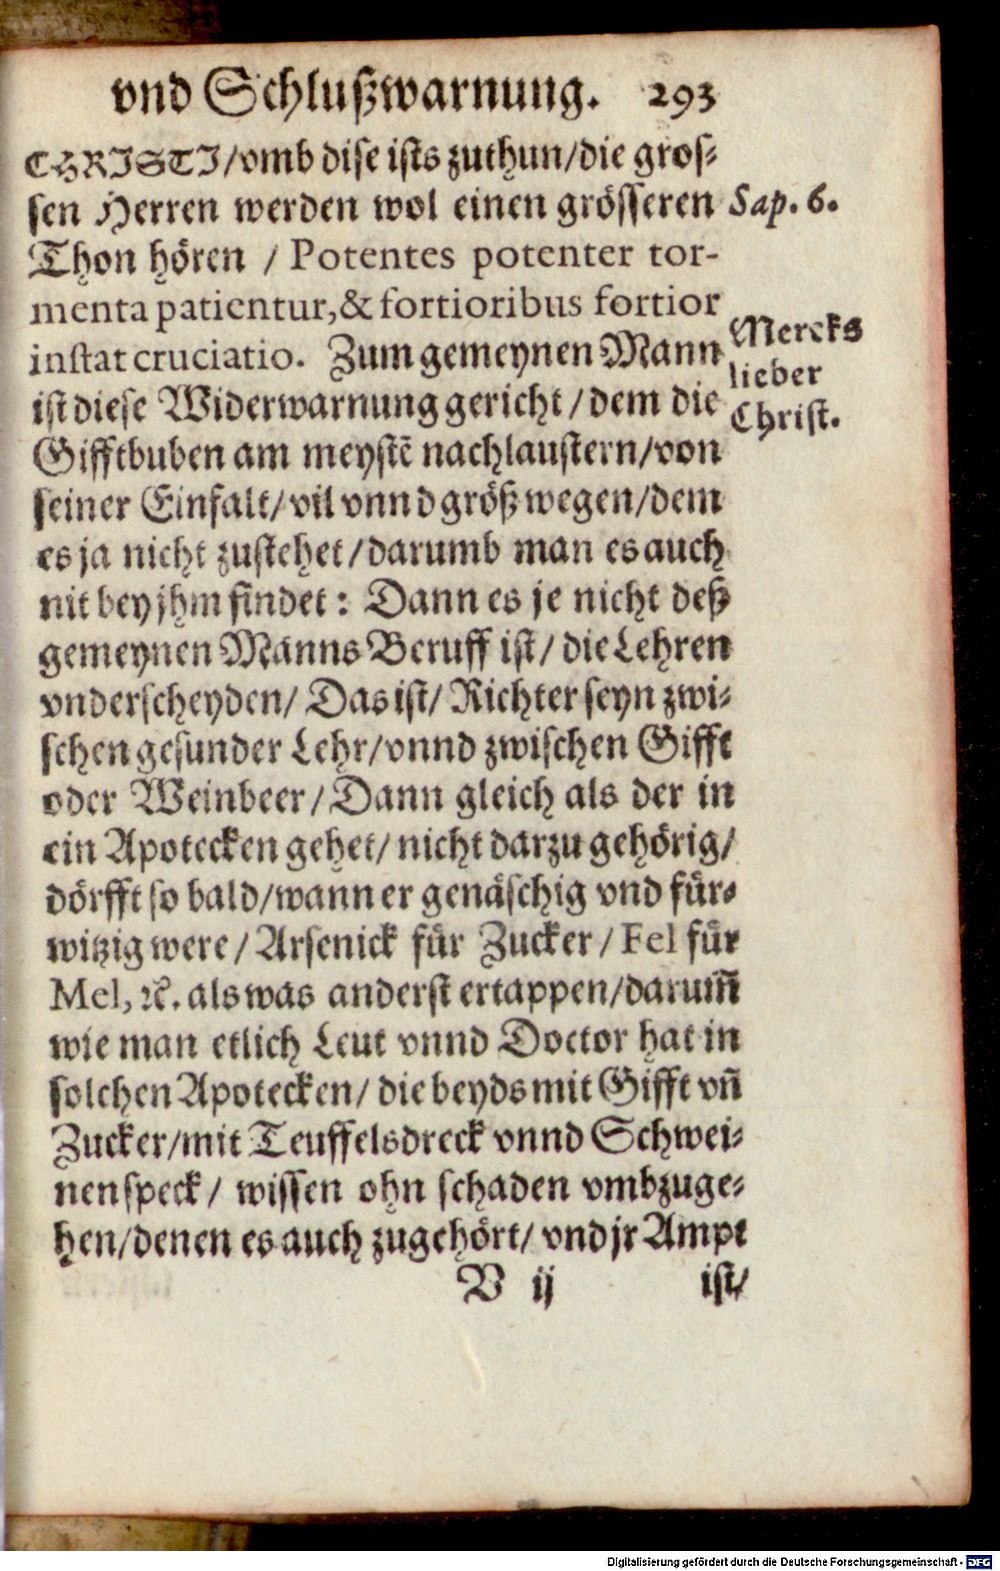 vnd Schlußwarnung. 293
CHRISTI/vmb dise ists zuthun/die gros-
sen Herren werden wol einen grösseren
Sap. 6.
Thon hören / Potentes potenter tor-
menta patientur, & fortioribus fortior
instat cruciatio. Zum gemeynen Mann
Mercks
lieber
Christ.
ist diese Widerwarnung gericht/dem die
Gifftbuben am meystē nachlaustern/von
seiner Einfalt/vil vnnd größ wegen/dem
es ja nicht zustehet/darumb man es auch
nit bey jhm findet: Dann es je nicht deß
gemeynen Manns Beruff ist/die Lehren
vnderscheyden/Das ist/Richter seyn zwi-
schen gesunder Lehr/vnnd zwischen Gifft
oder Weinbeer/Dann gleich als der in
ein Apotecken gehet/nicht darzu gehörig/
dörfft so bald/wann er genäschig vnd für-
witzig were/Arsenick für Zucker/Fel für
Mel, ꝛc. als was anderst ertappen/darum̄
wie man etlich Leut vnnd Doctor hat in
solchen Apotecken/die beyds mit Gifft vn̄
Zucker/mit Teuffelsdreck vnnd Schwei-
nenspeck/wissen ohn schaden vmbzuge-
hen/denen es auch zugehört/vnd jr Ampt
V ij ist/
Digitalisierung gefördert durch die Deutsche Forschungsgemeinschaft - DFG